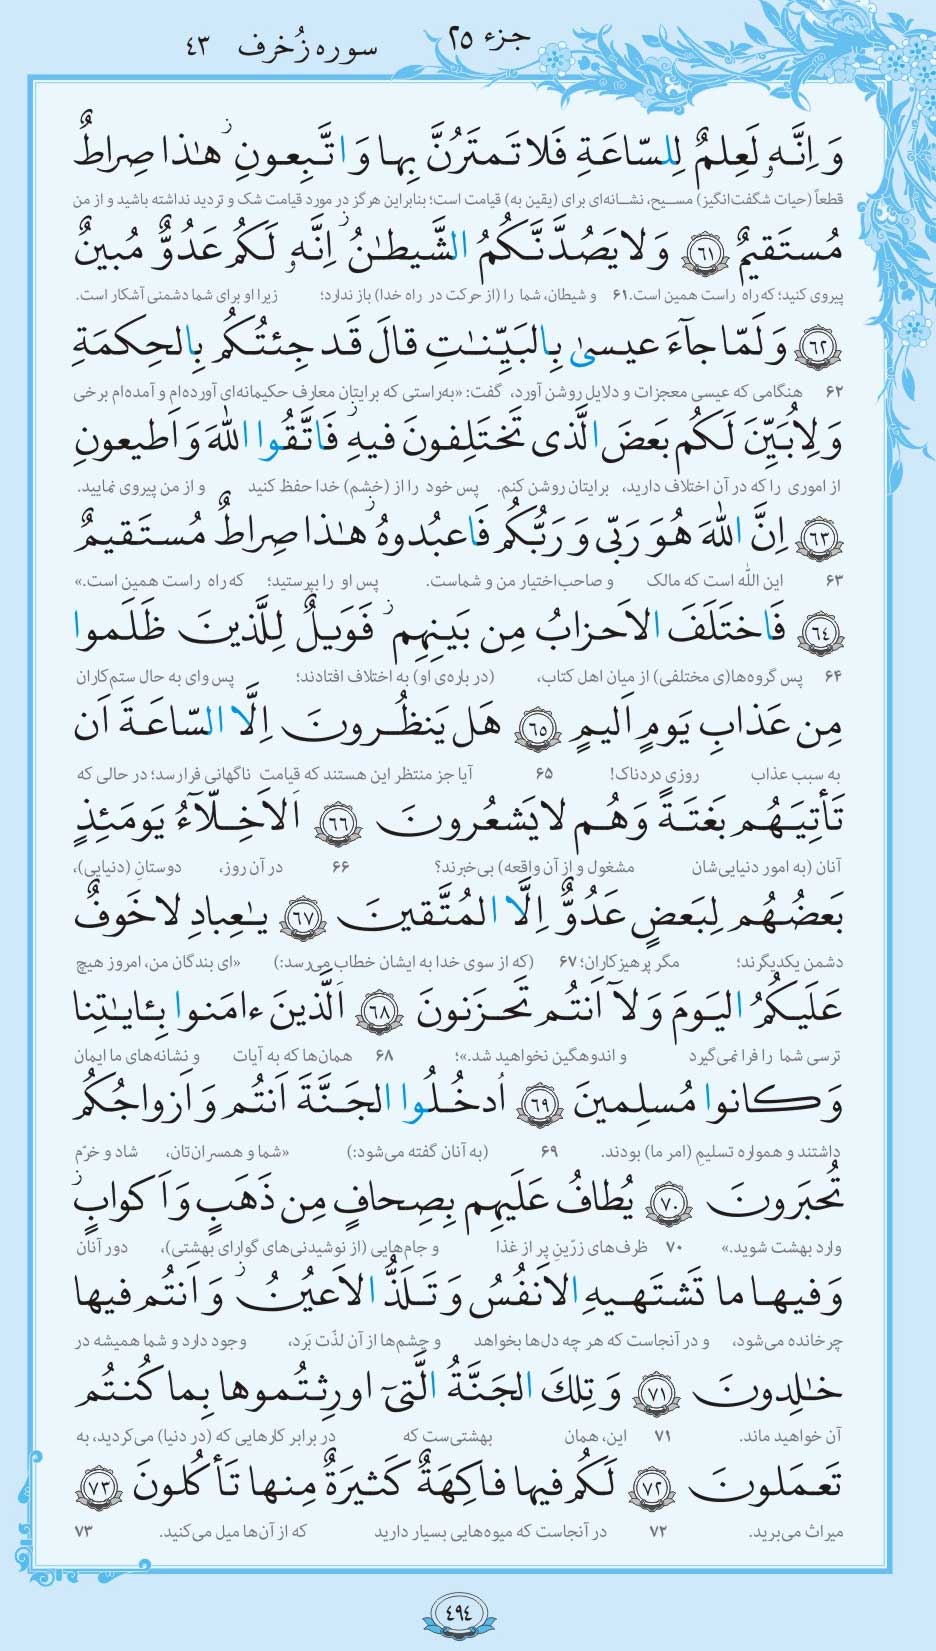 جزء ۲۵
سوره زُخرف ۴۳
وَ اِنَّهٗ لَعِلمٌ لِلسّاعَةِ فَلا تَمتَرُنَّ بِها وَ اتَّبِعونِ ۚ هٰذا صِراطٌ
قطعاً (حیات شگفت‌انگیز) مسیح، نشانه‌ای برای (یقین به) قیامت است؛ بنابراین هرگز در مورد قیامت شک و تردید نداشته باشید و از من
مُستَقیمٌ ﴿٦١﴾ وَ لا یَصُدَّنَّکُمُ الشَّیطٰنُ ۖ اِنَّهٗ لَکُم عَدُوٌّ مُبینٌ
پیروی کنید؛ که راه راست همین است. ۶۱ و شیطان، شما را (از حرکت در راه خدا) باز ندارد؛ زیرا او برای شما دشمنی آشکار است.
﴿٦٢﴾ وَ لَمّا جآءَ عیسیٰ بِالبَیِّنٰتِ قالَ قَد جِئتُکُم بِالحِکمَةِ
۶۲ هنگامی که عیسی معجزات و دلایل روشن آورد، گفت: «به‌راستی که برایتان معارف حکیمانه‌ای آورده‌ام و آمده‌ام برخی
وَ لِاُبَیِّنَ لَکُم بَعضَ الَّذی تَختَلِفونَ فیهِ ۖ فَاتَّقُوا اللّٰهَ وَ اَطیعونِ
از اموری را که در آن اختلاف دارید، برایتان روشن کنم. پس خود را از (خشم) خدا حفظ کنید و از من پیروی نمایید.
﴿٦٣﴾ اِنَّ اللّٰهَ هُوَ رَبّی وَ رَبُّکُم فَاعبُدوهُ ۚ هٰذا صِراطٌ مُستَقیمٌ
۶۳ این الله است که مالک و صاحب‌اختیار من و شماست. پس او را بپرستید؛ که راه راست همین است.»
﴿٦٤﴾ فَاختَلَفَ الاَحزابُ مِن بَینِهِم ۖ فَوَیلٌ لِلَّذینَ ظَلَموا
۶۴ پس گروه‌ها(ی مختلفی) از میان اهل کتاب، (در باره‌ی او) به اختلاف افتادند؛ پس وای به حال ستم‌کاران
مِن عَذابِ یَومٍ اَلیمٍ ﴿٦٥﴾ هَل یَنظُرونَ اِلَّا السّاعَةَ اَن
به سبب عذاب روزی دردناک! ۶۵ آیا جز منتظر این هستند که قیامت ناگهانی فرا رسد؛ در حالی که
تَأتِیَهُم بَغتَةً وَ هُم لا یَشعُرونَ ﴿٦٦﴾ اَلاَخِلّآءُ یَومَئِذٍ
آنان (به امور دنیایی‌شان مشغول و از آن واقعه) بی‌خبرند؟ ۶۶ در آن روز، دوستانِ (دنیایی)،
بَعضُهُم لِبَعضٍ عَدُوٌّ اِلَّا المُتَّقینَ ﴿٦٧﴾ یٰعِبادِ لا خَوفٌ
دشمن یکدیگرند؛ مگر پرهیزکاران؛ ۶۷ (که از سوی خدا به ایشان خطاب می‌رسد:) «ای بندگان من، امروز هیچ
عَلَیکُمُ الیَومَ وَ لآ اَنتُم تَحزَنونَ ﴿٦٨﴾ اَلَّذینَ ءامَنوا بِـٔایٰتِنا
ترسی شما را فرا نمی‌گیرد و اندوهگین نخواهید شد.»؛ ۶۸ همان‌ها که به آیات و نشانه‌های ما ایمان
وَ کانوا مُسلِمینَ ﴿٦٩﴾ اُدخُلُوا الجَنَّةَ اَنتُم وَ اَزواجُکُم
داشتند و همواره تسلیم (امر ما) بودند. ۶۹ (به آنان گفته می‌شود:) «شما و همسران‌تان، شاد و خرّم
تُحبَرونَ ﴿٧٠﴾ یُطافُ عَلَیهِم بِصِحافٍ مِن ذَهَبٍ وَ اَکوابٍ ۖ
وارد بهشت شوید.» ۷۰ ظرف‌های زرّینِ پر از غذا و جام‌هایی (از نوشیدنی‌های گوارای بهشتی)، دور آنان
وَ فیها ما تَشتَهیهِ الاَنفُسُ وَ تَلَذُّ الاَعیُنُ ۖ وَ اَنتُم فیها
چرخانده می‌شود، و در آنجاست که هر چه دل‌ها بخواهد و چشم‌ها از آن لذّت بَرد، وجود دارد و شما همیشه در
خٰلِدونَ ﴿٧١﴾ وَ تِلکَ الجَنَّةُ الَّتیٓ اورِثتُموها بِما کُنتُم
آن خواهید ماند. ۷۱ این، همان بهشتی‌ست که در برابر کارهایی که (در دنیا) می‌کردید، به
تَعمَلونَ ﴿٧٢﴾ لَکُم فیها فاکِهَةٌ کَثیرَةٌ مِنها تَأکُلونَ ﴿٧٣﴾
میراث می‌برید. ۷۲ در آنجاست که میوه‌هایی بسیار دارید که از آن‌ها میل می‌کنید. ۷۳
۴۹۴